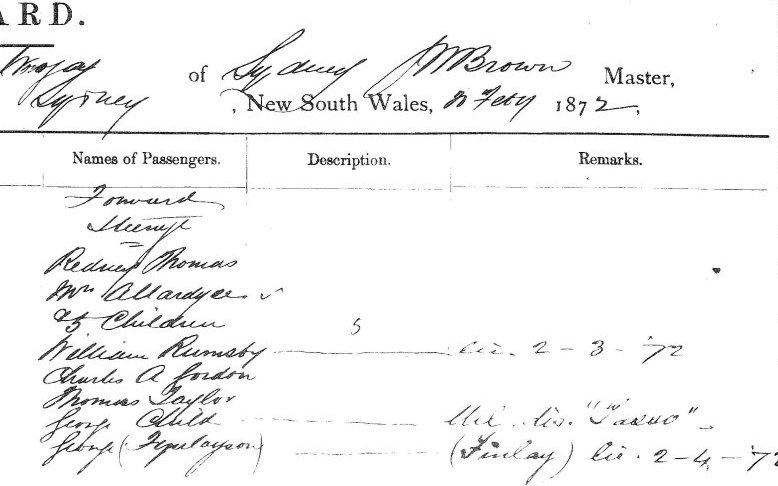 ARD.
of Sydney J M Brown Master,
Sydney, New South Wales, Feby 1872,
Names of Passengers. Description. Remarks.
Forward
Steerage
Redney Thomas
Mrs Allardyce
& 5 Children 5
William Rumsby lic. 2-3-'72
Charles A Gordon
Thomas Taylor
George Child "Tasso"
George (Finlayson) (Finlay) lic. 2-4-'72